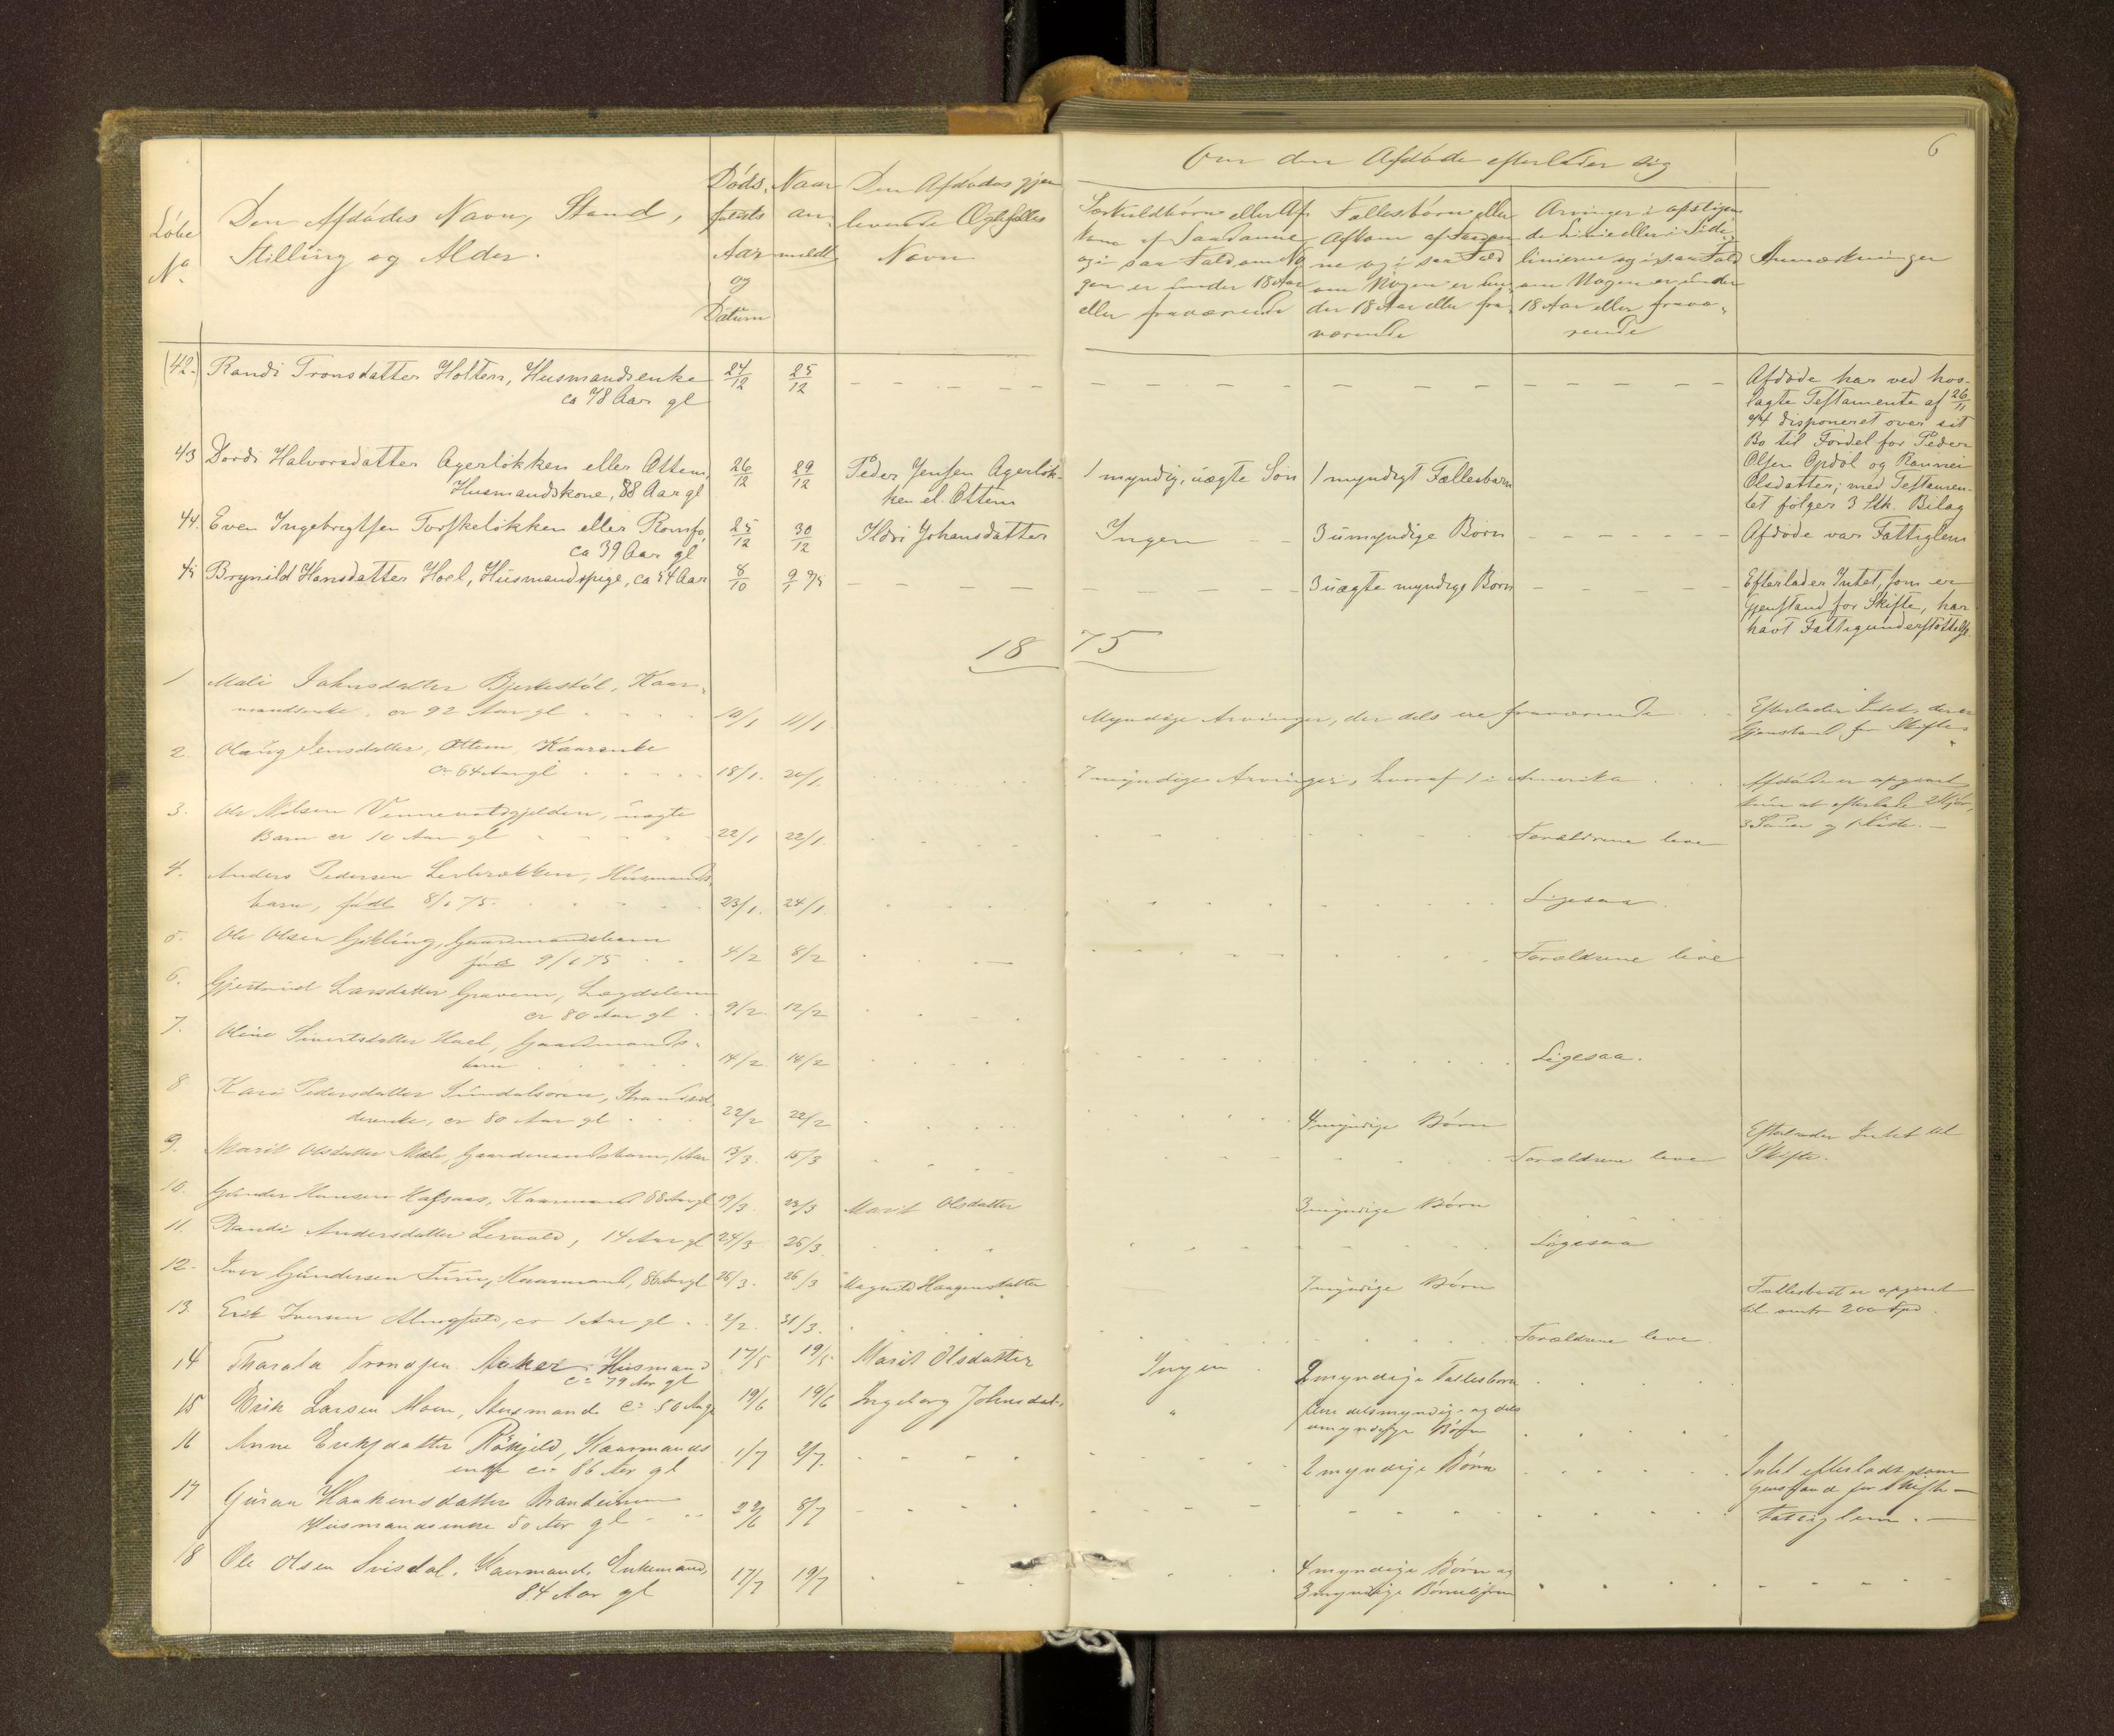 6
Om den Afdøde efterlader sig
Løbe
No
Den Afdødes Navn, Stand,
Stilling og Alder.
Døds-
faldets
Aar
og
Datum
Naar
an-
meldt
Den Afdødes gjen-
levende Ægtefælles
Navn
Særkuldbørn eller Af-
kom af Saadanne
og i saa Fald om No-
gen er under 18 Aar
eller fraværende
Fællesbørn eller
Afkom af Saadan-
ne og i saa Fald
om Nogen er un-
der 18 Aar eller fra-
værende
Arvinger i opstigen-
de Linie eller i Side-
linierne og i saa Fald
om Nogen er under
18 Aar eller fravæ-
rende
Anmærkninger
(42.) Randi Tronsdatter Holten, Husmandsenke 24/12 25/12
ca 78 Aar gl
Afdøde har ved hos-
lagte Testamente af 26/11
44 disponeret over sit
Bo til Fordel for Peder
Olsen Opdøl og Rannei
Olsdatter; med Testamen-
tet følger 3 Stk. Bilag
43 Dordi Halvorsdatter Agerløkken eller Ottem, 26/12 29/12 Peder Jensen Agerløk- 1 myndig, uægte Søn 1 myndigt Fællesbarn
Husmandskone, 88 Aar gl ken el. Ottem
44. Even Ingebrigtsen Torskeløkken eller Romfo, 25/12 30/12 Ildri Johansdatter Ingen 3 umyndige Børn Afdøde var Fattiglem
ca 39 Aar gl
45 Brynild Hansdatter Hoel, Husmandspige, ca 54 Aar 8/10 9/1 75 3 uægte myndige Børn Efterlader Intet, som er
Gjenstand for Skifte, har
havt Fattigunderstøttelse
18 75
1 Mali Johnsdatter Bjerkestøl, Kaar-
mandsenke, ca 92 Aar gl 10/1 11/1 Myndige Arvinger, der dels ere fraværende Efterlader Intet, der er
Gjenstand for Skifte
2. Olaug Jensdatter, Ottem, Kaarenke
ca 64 Aar gl 18/1. 20/1. 7 myndige Arvinger, hvoraf 1 i Amerika Afdøde er opgivet
kun at efterlade 2 Kjør,
3 Sauer og 1 Kiste.
3. Ole Nilsen Vennevoldsgjelden, uægte
Barn ca 10 Aar gl 22/1 22/1 Forældrene leve
4. Anders Pedersen Lerbrækken, Husmands-
barn, født 8/1 75. 23/1. 24/1 Ligesaa.
5. Ole Olsen Gikling, Gaardmandsbarn
født 9/1 75 4/2 8/2 Forældrene leve
6. Gjertrud Larsdatter Gravem, Lægdslem
ca 80 Aar gl 9/2. 12/2
7. Oline Sivertsdatter Hoel, Gaardmands-
barn 14/2 16/2 Ligesaa.
8 Kari Pedersdatter Sundalsøren, Strandsid-
derenke, ca 80 Aar gl 22/2 22/2 4 myndige Børn Efterlader Intet til
Skifte.
9. Marit Olsdatter Mæle, Gaardmandsbarn, 1 Aar 13/3. 15/3 Forældrene leve
10. Gunder Hansen Hafsaas, Kaarmand 68 Aar gl 19/3. 23/3 Marit Olsdatter 3 myndige Børn
11. Randi Andersdatter Lervold, 14 Aar gl 24/3 26/3. Ligesaa
12. Iver Gundersen Furu, Kaarmand, 86 Aar gl 26/3. 26/3 Magnild Haagensdatter 7 myndige Børn Fællesboet er opgivet
til netto 200 Spd.
13. Erik Iversen Almsgjeld, ca 1 Aar gl 2/2. 31/3. Forældrene leve.
14 Tharald Trondsen Aaker, Husmand 17/5 19/5 Marit Olsdatter Ingen 2 myndige Fællesbørn
ca 79 Aar gl
15 Erik Larsen Moen, Husmand ca 50 Aar gl 19/6 19/6 Ingeborg Johnsdat. " flere dels myndige og dels
umyndige Børn
16 Anne Eriksdatter Røkjeld, Kaarmands
enke ca 86 Aar gl 1/7 2/7. 2 myndige Børn Intet efterladt som
Gjenstand for Skifte
17 Guran Haakensdatter
Husmandsenke 50 Aar gl 29/6 8/7 Fattiglem.
18 Ole Olsen Svisdal. Kaarmand, Enkemand,
84 Aar gl 17/7 19/7 4 myndige Børn og
3 myndige Børnebørn